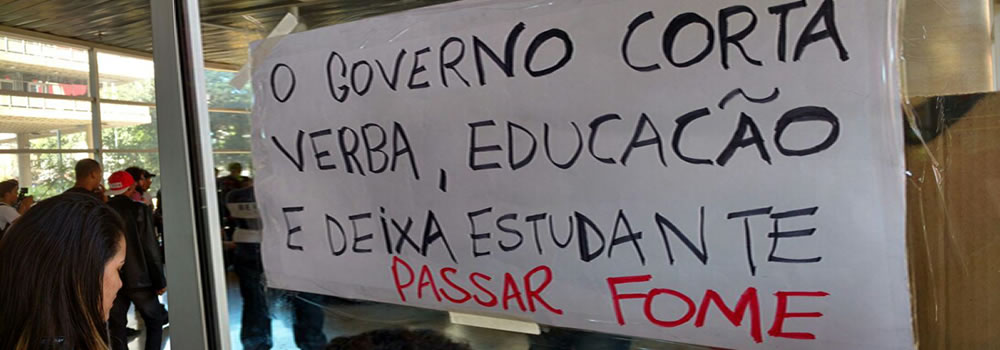 O GOVERNO CORTA
VERBA, EDUCACÃO
E DEIXA ESTUDANTE
PASSAR FOME